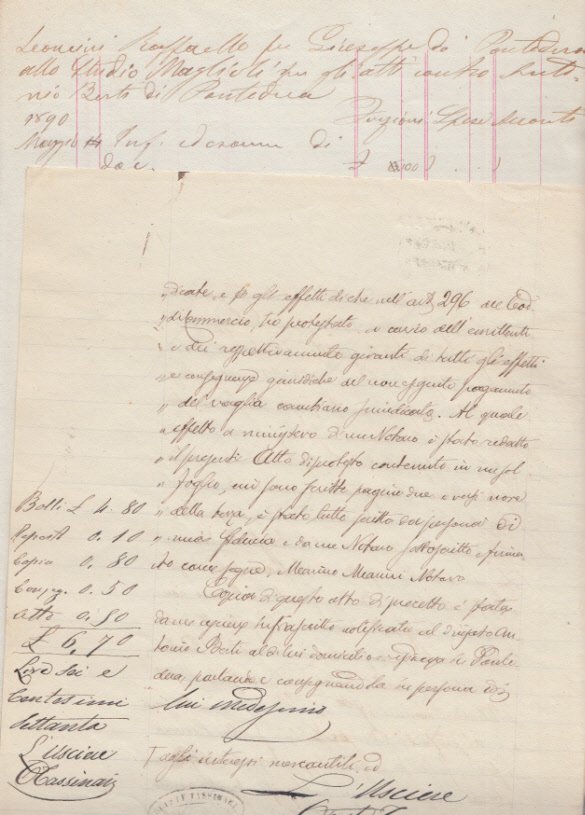 Leoncini Raffaello fu Giuseppe di Pontedera
allo Studio Maglioli per gli atti contro
nio Berti di Pontedera
1890
Funzioni Spese Acconti
Maggio 14 Inf. ed esame di
doc.
£ 100
„ dicate, e per gli effetti di che nell'art. 296 del Cod.
„ di Commercio, ho protestato a carico dell'emittente
e dei respettivamente giranti di tutti gli effetti
e conseguenze giuridiche del non eseguito pagamento
„ del vaglia cambiario succitato. Al quale
„ effetto a ministero di me Notaro è stato redatto
„ il presente Atto di protesto contenuto in un sol
„ foglio, cui sono scritte pagine due e versi nove
„ della terza, è stato tutto scritto da persona di
„ mia fiducia e da me Notaro sottoscritto e firma
„ to come segue, Marino Marini Notaro
Copia di questo atto di protesto è stata
da me usciere infrascritto notificata al Signor An
tonio Berti al di lui domicilio in Ponte
dera parlando e consegnandola in persona di
lui medesimo
Bolli £ 4.80
Repert 0.10
Copia 0.80
0.50
Atto 0.50
£ 6,70
Lire Sei e
Centesimi
Settanta
L'Usciere
Tassinari
Tagli interessi mercantili
L'Usciere
TASSINARI